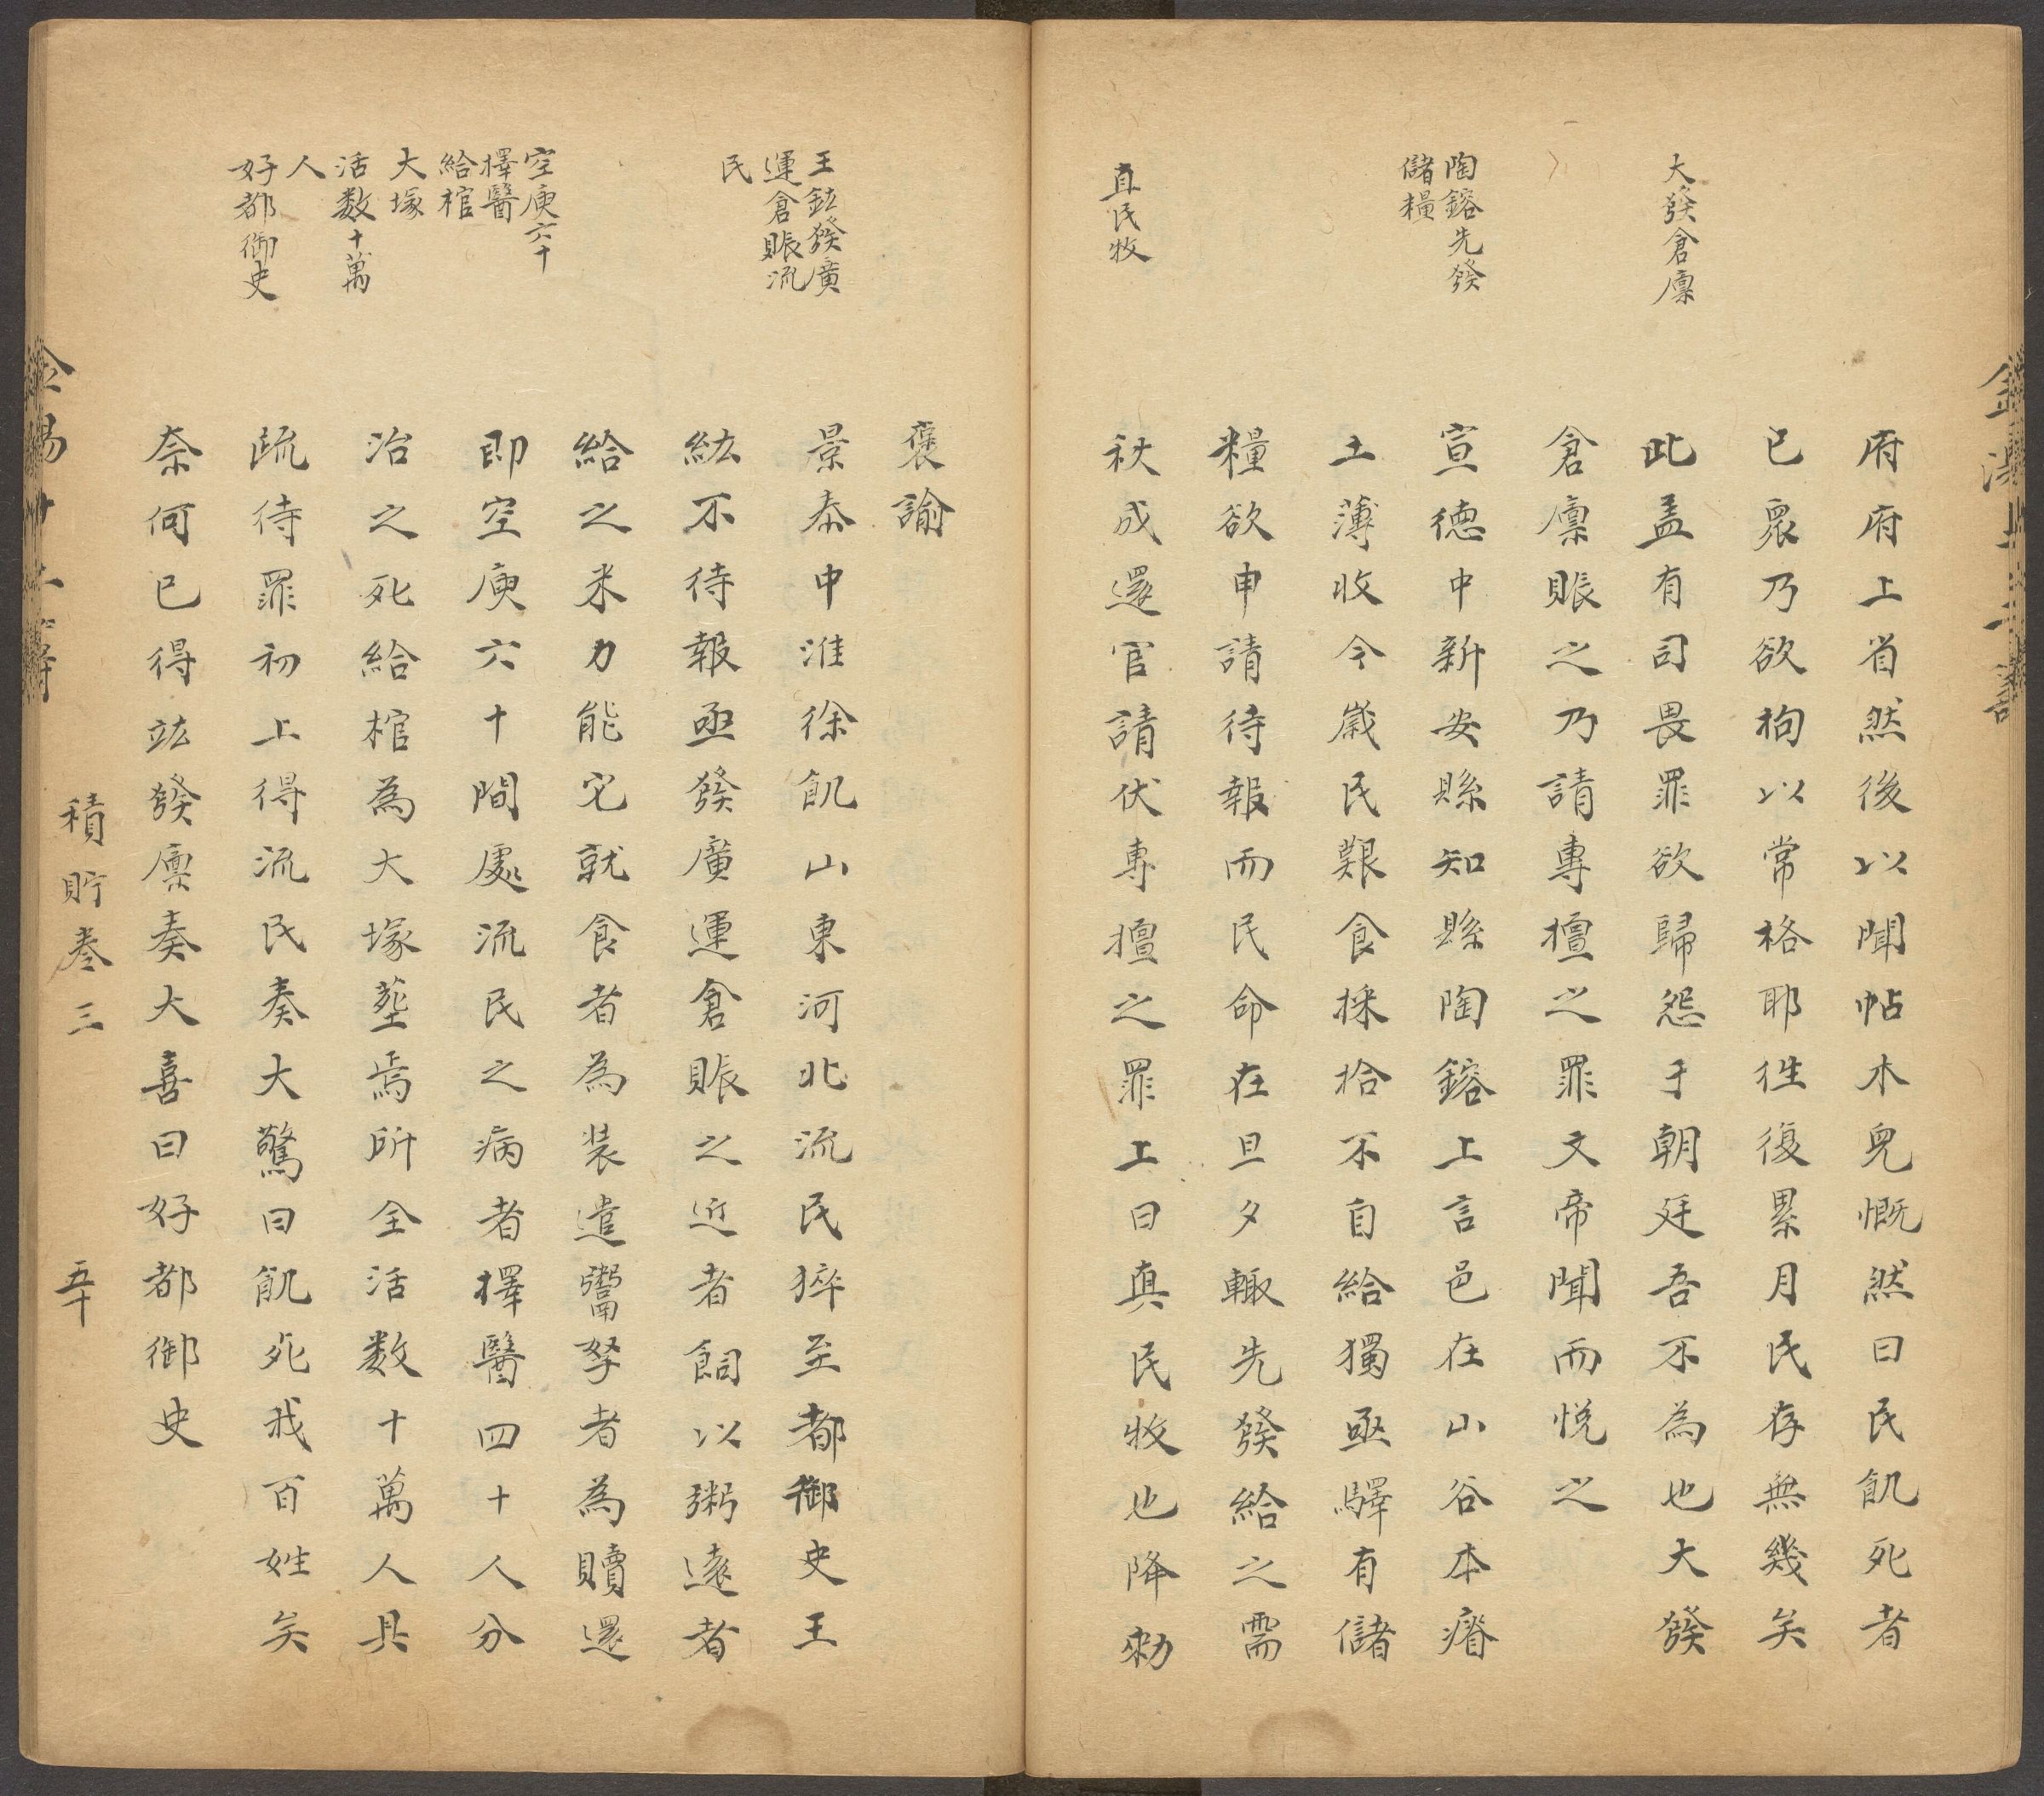 大發倉廩
陶鎔先發
儲糧
真民牧
府府上省然後以聞帖木兒慨然曰民飢死者
已衆乃欲拘以常格耶徃復累月民存無幾矣
此盖有司畏罪欲歸怨于朝廷吾不為也大發
倉廩賑之乃請專擅之罪文帝聞而悅之
宣德中新安縣知縣陶鎔上言邑在山谷本瘠
土薄收今歲民艱食採拾不自給獨亟驛有儲
糧欲申請待報而民命在旦夕輙先發給之需
秋成還官請伏專擅之罪上曰真民牧也降勑
王鈜發廣
運倉賑流
民
空庾六十
擇醫
給棺
大塚
活数十萬
人
好都御史
褒諭
景泰中淮徐飢山東河北流民猝至都御史王
紘不待報亟發廣運倉賑之近者飼以粥遠者
給之米力能它就食者為装遣鬻孥者為贖還
即空庾六十間處流民之病者擇醫四十人分
治之死給棺為大塚塟焉所全活数十萬人具
疏待罪初上得流民奏大驚曰飢死我百姓矣
奈何已得竑發廪奏大喜曰好都御史
積貯卷三
五十